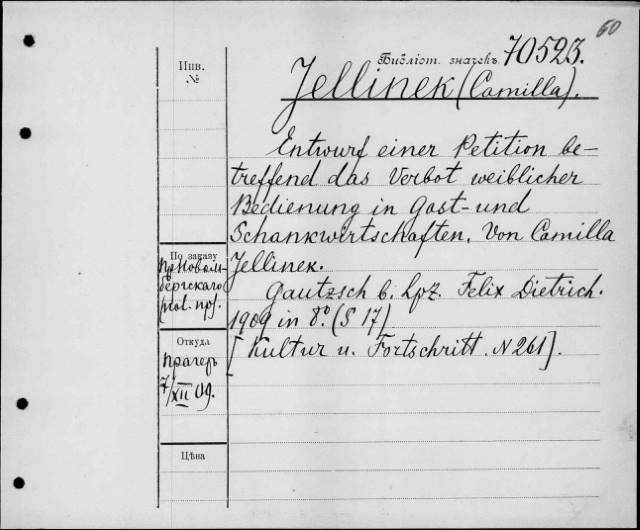 60
Библіот. значекъ 70523.
Инв.
№
Jellinek (Camilla).
Entwurf einer Petition be-
treffend das Verbot weiblicher
Bedienung in Gast- und
Schankwirtschaften. Von Camilla
Jellinek.
Gautzsch b. Lpz. Felix Dietrich.
1909 in 8º. (S 17)
[Kultur u. Fortschritt. N 261].
По заказу
бергскаго
Откуда
Прагеръ
7/XII 09.
Цѣна